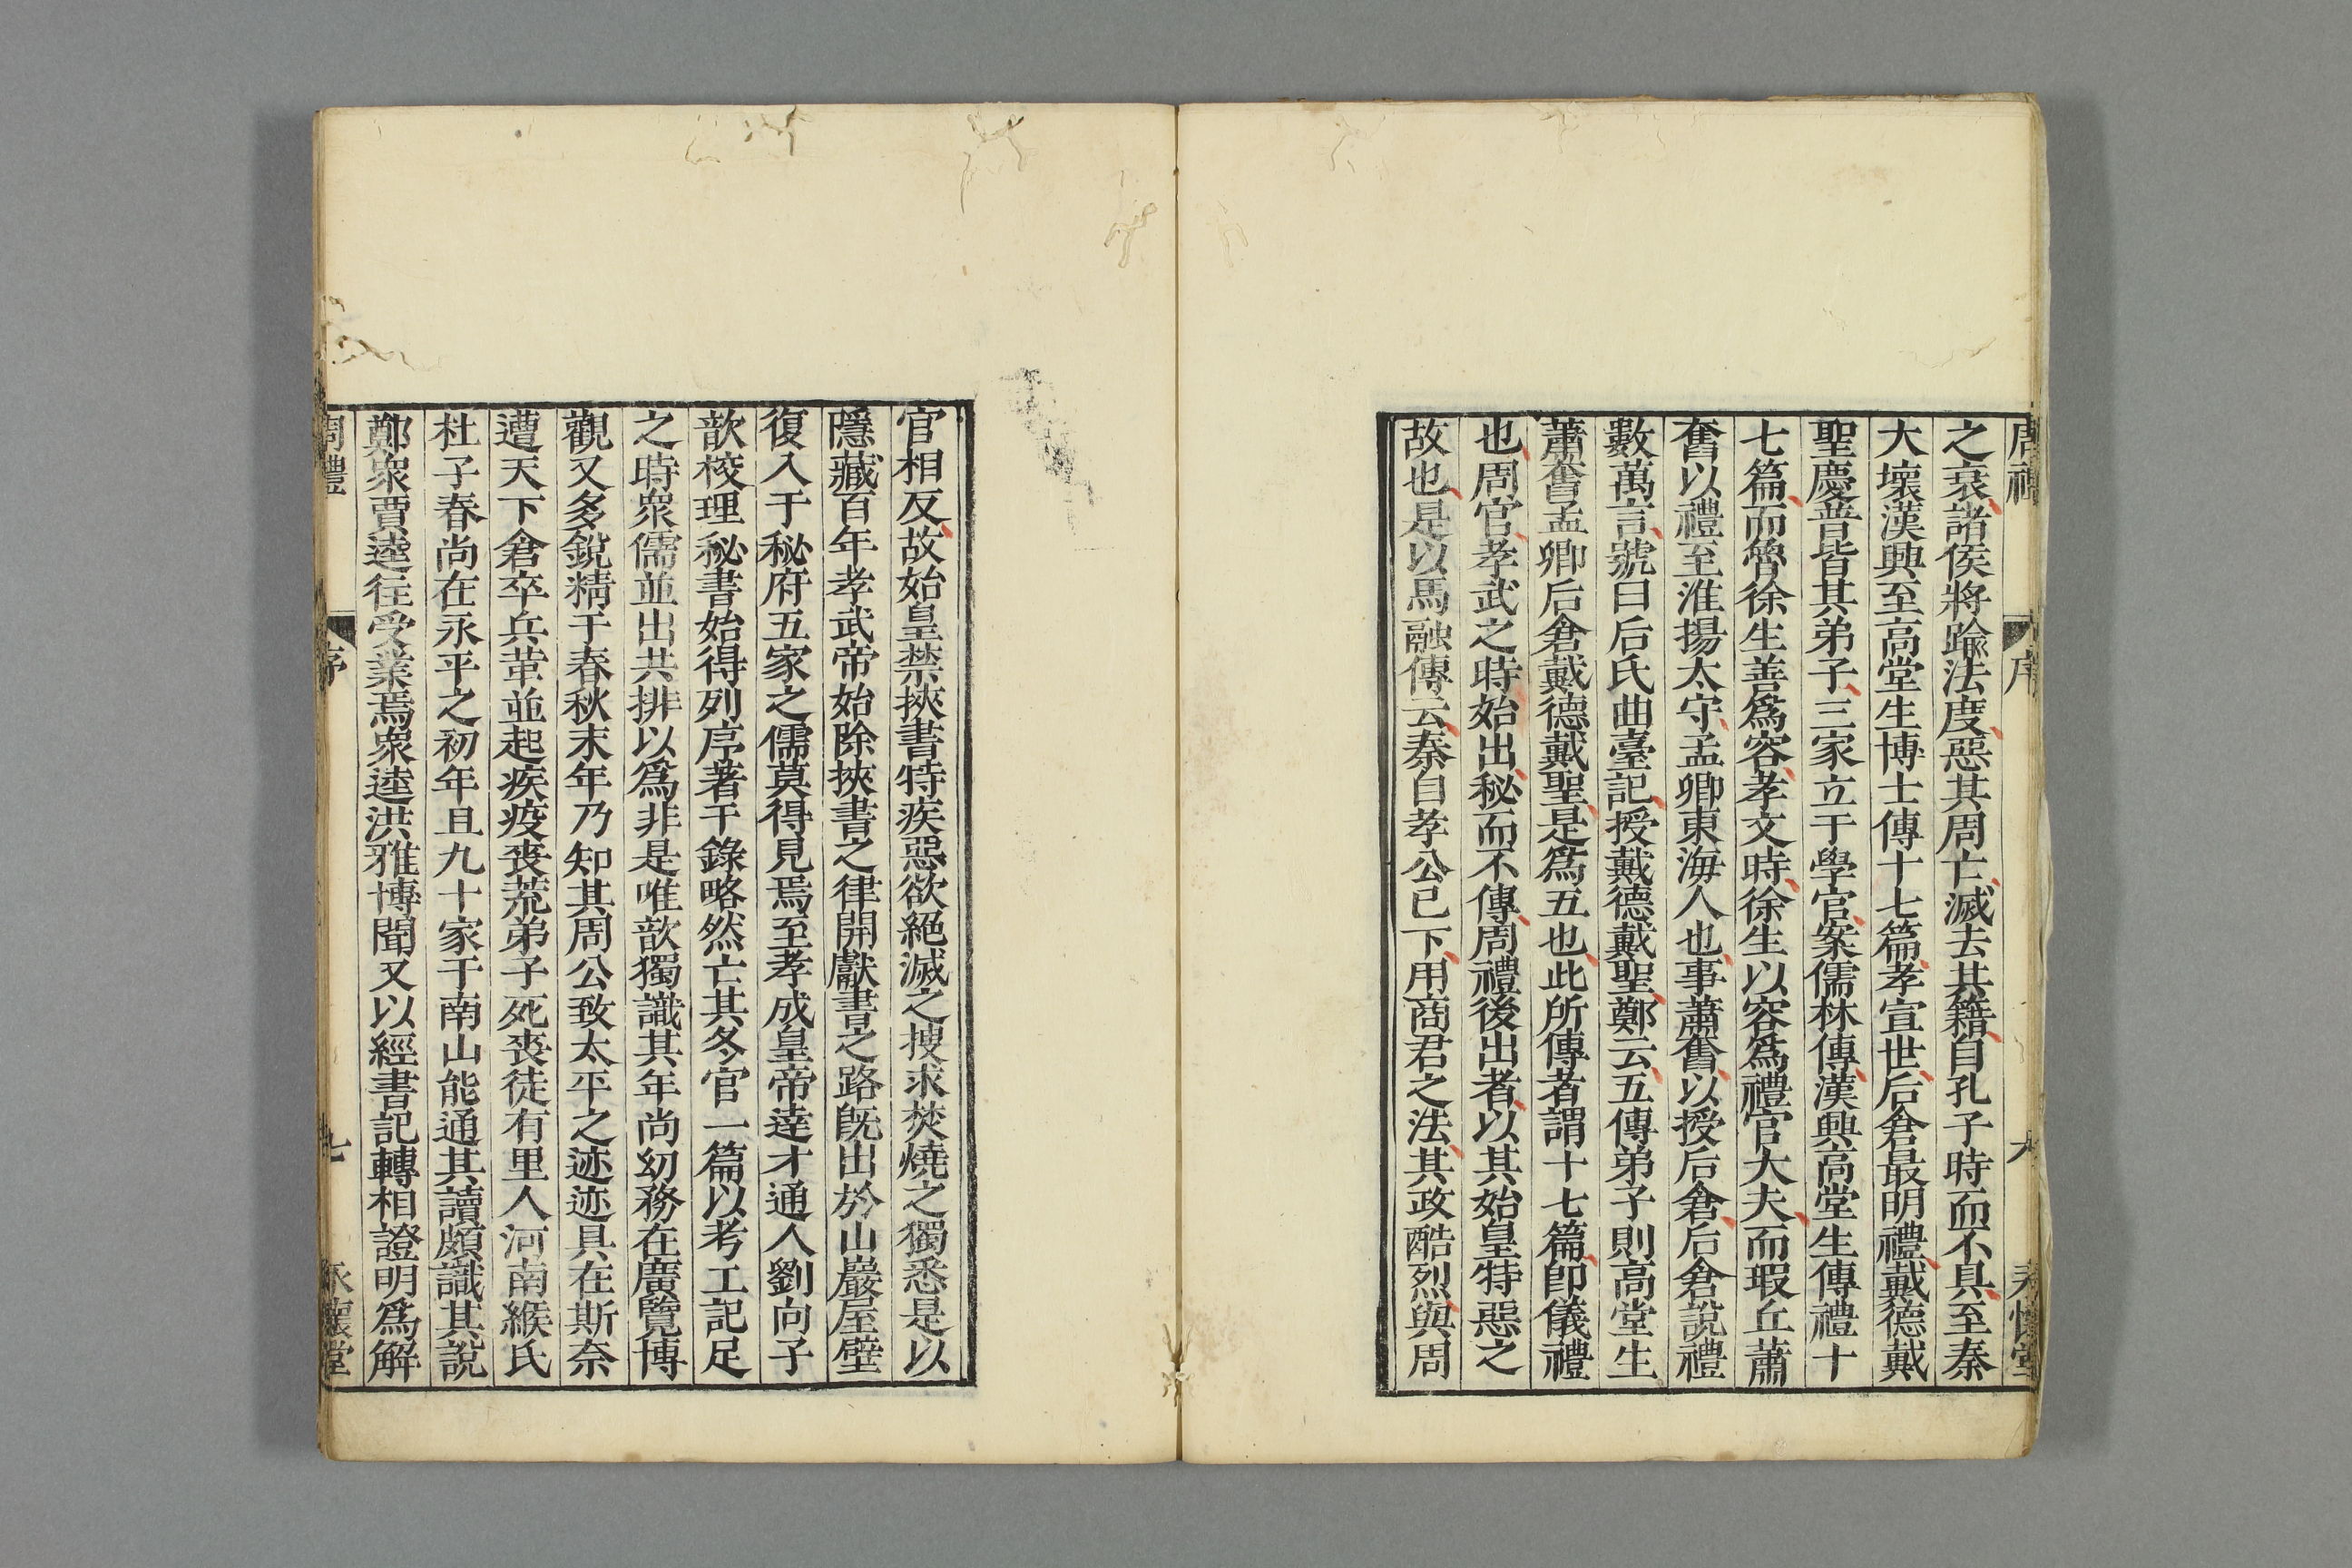 周禮 序 六 永懷堂
之衰諸侯將踰法度惡其周亡滅去其籍自孔子時而不具至秦
大壞漢興至高堂生博士傳十七篇孝宣世后倉最明禮戴德戴
聖慶普皆其弟子三家立于學官案儒林傳漢興高堂生傳禮十
七篇而魯徐生善爲容孝文時徐生以容爲禮官大夫而瑕丘蕭
奮以禮至淮揚太守孟卿東海人也事蕭奮以授后倉后倉說禮
數萬言號曰后氏曲臺記授戴德戴聖鄭云五傳弟子則高堂生
蕭奮孟卿后倉戴德戴聖是爲五也此所傳者謂十七篇卽儀禮
也周官孝武之時始出秘而不傳周禮後出者以其始皇特惡之
故也是以馬融傳云秦自孝公已下用商君之法其政酷烈與周
官相反故始皇禁挾書特疾惡欲絕滅之搜求焚燒之獨悉是以
隱藏百年孝武帝始除挾書之律開獻書之路旣出於山巖屋壁
復入于秘府五家之儒莫得見焉至孝成皇帝達才通人劉向子
歆校理秘書始得列序著于錄略然亡其冬官一篇以考工記足
之時衆儒並出共排以爲非是唯歆獨識其年尚幼務在廣覽博
觀又多銳精于春秋末年乃知其周公致太平之迹迹具在斯奈
遭天下倉卒兵革並起疾疫喪荒弟子死喪徒有里人河南緱氏
杜子春尚在永平之初年且九十家于南山能通其讀頗識其說
鄭衆賈逵往受業焉衆逵洪雅博聞又以經書記轉相證明爲解
周禮 序 七 永懷堂